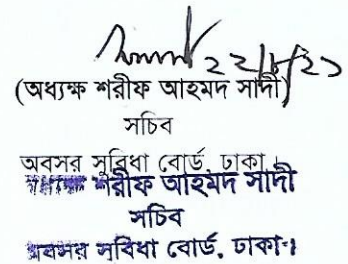 ২২/৮/২১
(অধ্যক্ষ শরীফ আহমদ সাদী)
সচিব
অবসর সুবিধা বোর্ড, ঢাকা।
অধ্যক্ষ শরীফ আহমদ সাদী
সচিব
অবসর সুবিধা বোর্ড, ঢাকা।